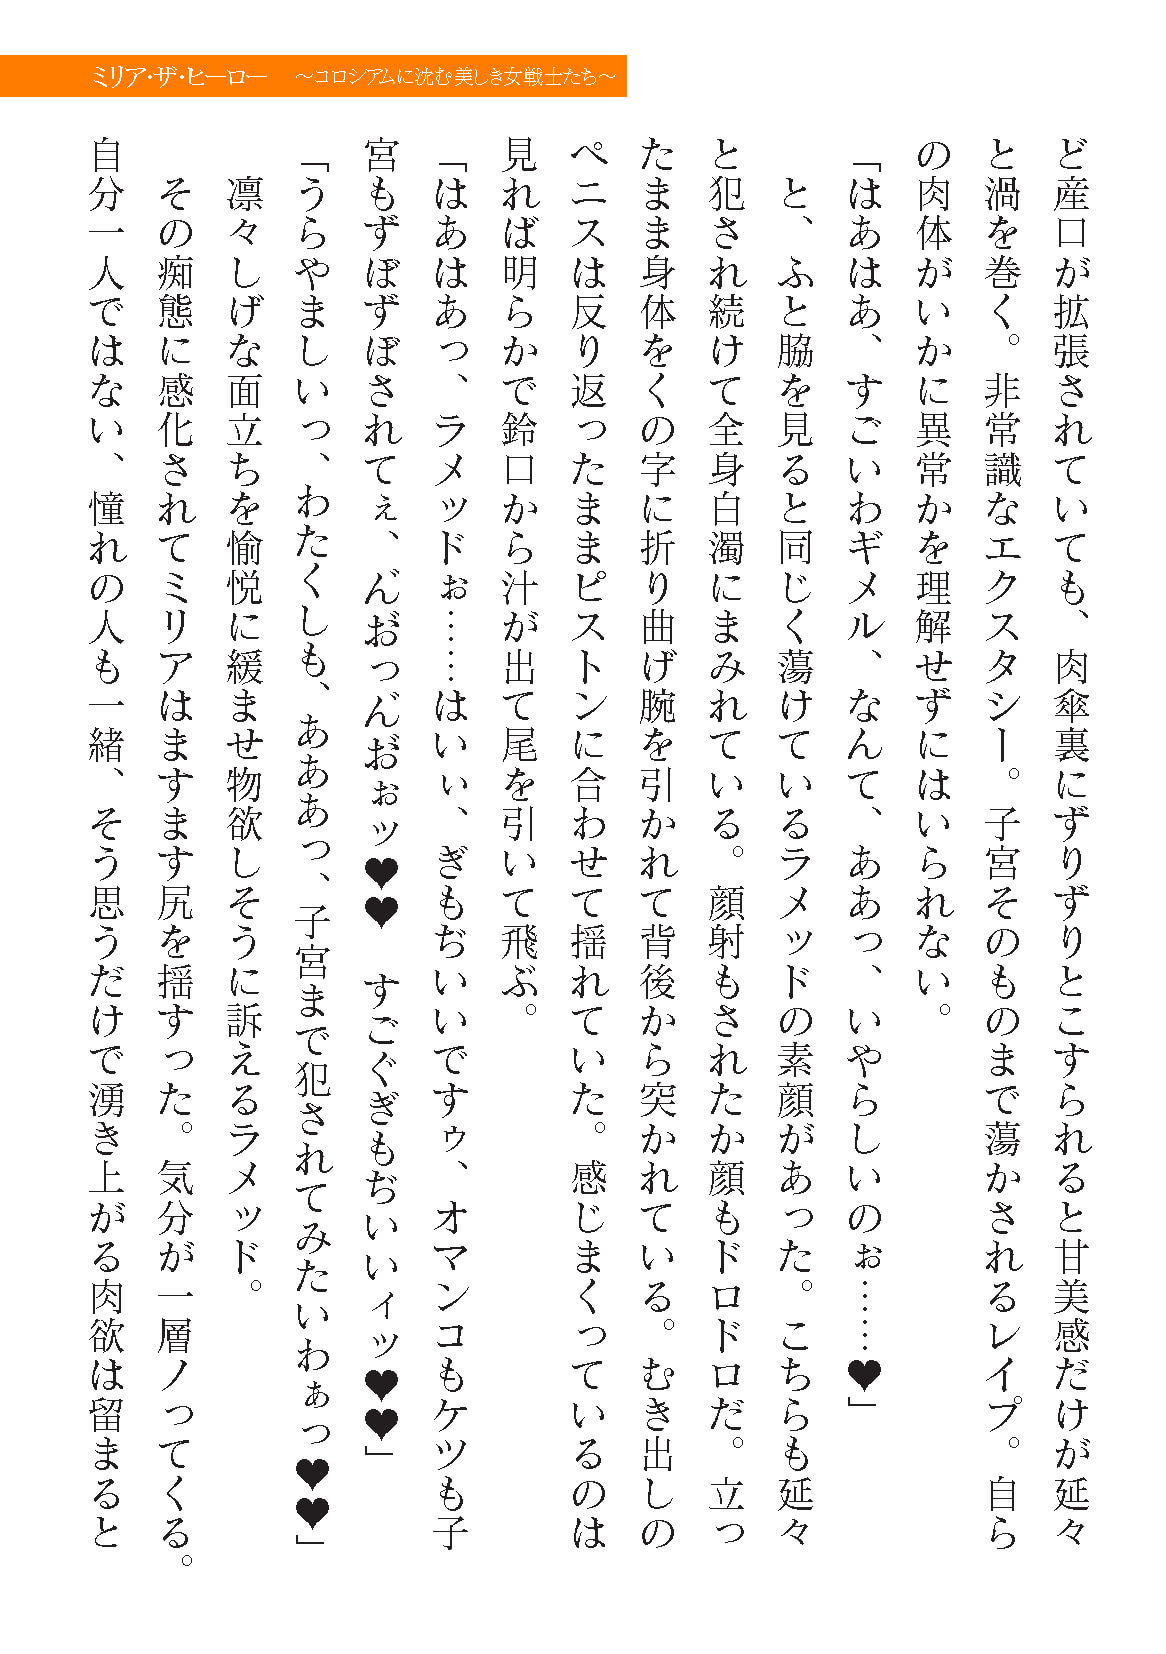 ミリア・ザ・ヒーロー　～コロシアムに沈む美しき女戦士たち～
ど産口が拡張されていても、肉傘裏にずりずりとこすられると甘美感だけが延々
と渦を巻く。非常識なエクスタシー。子宮そのものまで蕩かされるレイプ。自ら
の肉体がいかに異常かを理解せずにはいられない。
「はあはあ、すごいわギメル、なんて、ああっ、いやらしいのぉ……♥」
　と、ふと脇を見ると同じく蕩けているラメッドの素顔があった。こちらも延々
と犯され続けて全身白濁にまみれている。顔射もされたか顔もドロドロだ。立っ
たまま身体をくの字に折り曲げ腕を引かれて背後から突かれている。むき出しの
ペニスは反り返ったままピストンに合わせて揺れていた。感じまくっているのは
見れば明らかで鈴口から汁が出て尾を引いて飛ぶ。
「はあはあっ、ラメッドぉ……はいぃ、ぎもぢいいですゥ、オマンコもケツも子
宮もずぼずぼされてぇ、ん゛お゛っん゛お゛ぉッ♥♥　すごぐぎもぢいいィッ♥♥」
「うらやましいっ、わたくしも、あああっ、子宮まで犯されてみたいわぁっ♥♥」
　凛々しげな面立ちを愉悦に緩ませ物欲しそうに訴えるラメッド。
　その痴態に感化されてミリアはますます尻を揺すった。気分が一層ノってくる。
自分一人ではない、憧れの人も一緒、そう思うだけで湧き上がる肉欲は留まると